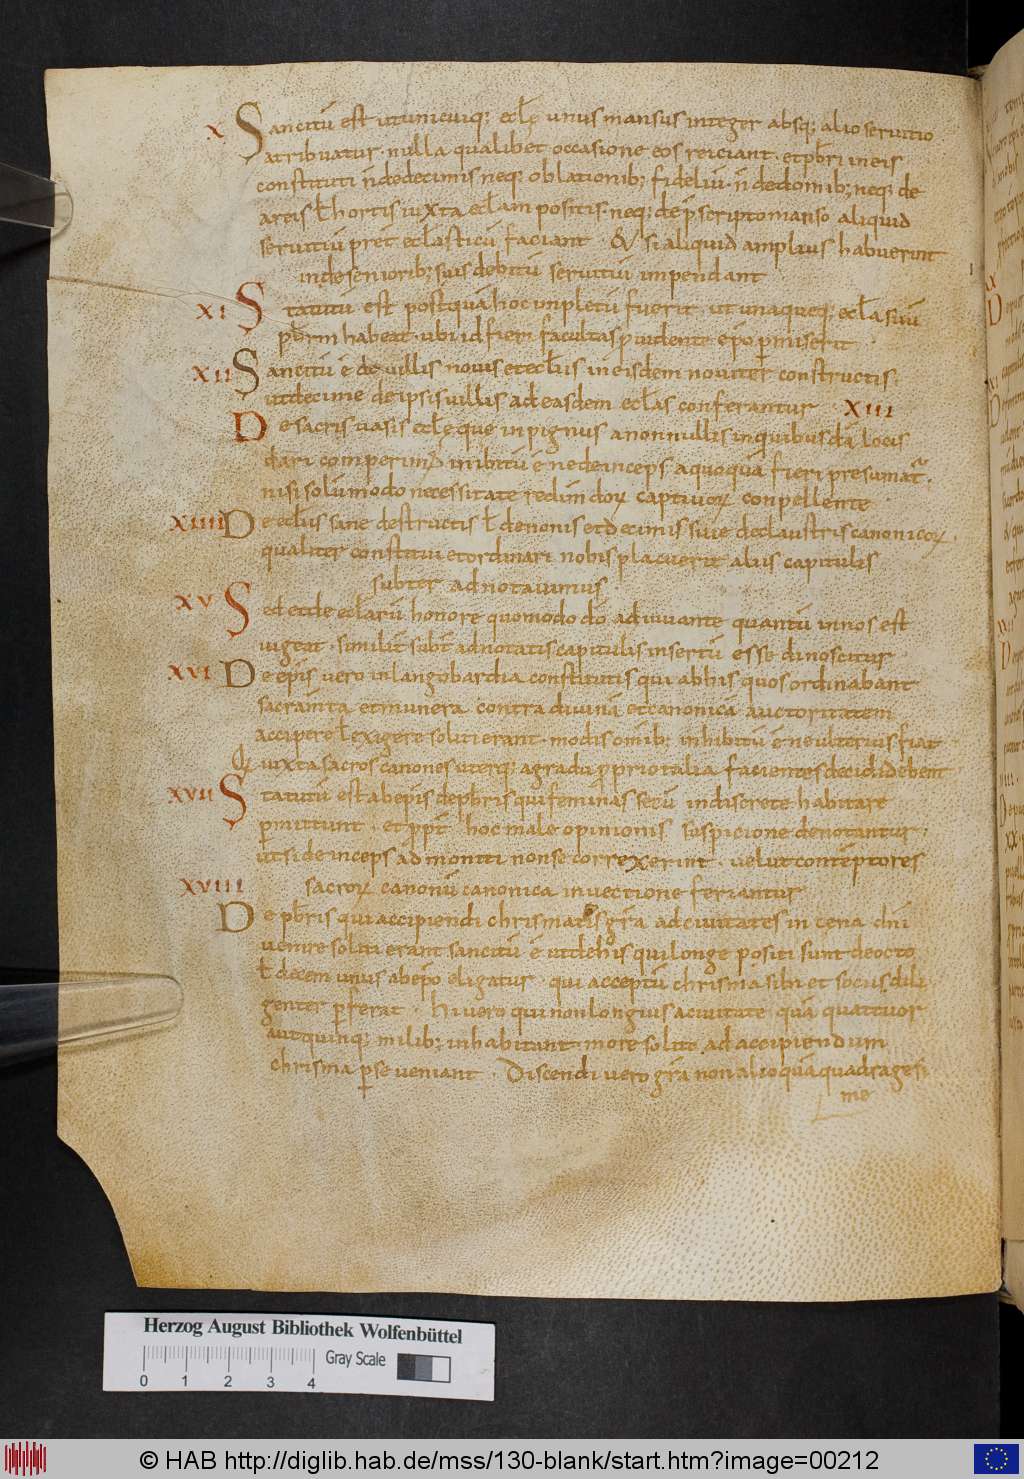 X Sancitū est ut unicuiq; eclę unus mansus integer absq; alio seruitio
atribuatur · nulla qualibet occasione eos reiciant · et pbri in eis
constituti n̄ de decimis neq; oblationib; fideliū · n̄ de domib; neq; de
areis ł hortis iuxta eclam positis · neq; de p̄scripto manso aliquid
seruitiū pret̄ eclasticū faciant · & si aliquid amplius habuerint
inde seniorib; suis debitū seruitiū impendant
XI Statutū est postquā hoc impletū fuerit · ut unaqueq; ecła suū
pbrm habeat · ubi id fieri facultas p̄uidente epo pmiserit ·
XII Sancitū ē de uillis nouis et eclis in eisdem nouiter constructis ·
ut decime de ipsis uillis ad easdem eclas conferantur XIII
De sacris uasis eclę que in pignus a nonnullis in quibusdā locis
dari comperim; inibitū ē ne deinceps a quoquā fieri presumat̄ ·
nisi solūmodo necessitate redimendorꝝ captiuorꝝ conpellente
XIIII De eclis sane destructis ł de nonis et decimis siue de claustris canonicorꝝ ·
qualiter constitui et ordinari nobis placuerit aliis capitulis
subter adnotauimus
XV Sed et de eclarū honore quomodo dō adiuuante quantū in nos est
uigeat · similit̄ subt̄ adnotatis capitulis insertū esse dinoscitur
XVI De epis uero in langobardia constitutis qui ab his quos ordinabant
sacramta et munera contra diuinā et canonicā auctoritatem
accipere ł exigere soliti erant · modis omib; inhibitū ē ne ulterius fiat
Q iuxta sacros canones uterq; a gradu pprio talia facientes decidi debent
XVII Statutū est ab epis de pbris qui feminas secū indiscrete habitare
pmittunt · et ppt̄ hoc male opinionis suspicione denotantur ·
ut si deinceps admoniti non se correxerint · uelut contēptores
XVIII sacrorꝝ canonū canonica inuectione feriantur
De pbris qui accipiendi chrismatis gr̄a ad ciuitates in cena dni
uenire soliti erant sancitū ē ut de his qui longe positi sunt de octo
ł decem unus ab epo eligatur · qui acceptū chrisma sibi et sociis dili
genter pferat · Hi uero qui non longius a ciuitate quā quattuor
aut quinq; milib; inhabitant · more solito ad accipiendum
chrisma p se ueniant · Discendi uero gr̄a non alio quā quadragesi
me
Herzog August Bibliothek Wolfenbüttel
Gray Scale
0 1 2 3 4
© HAB http://diglib.hab.de/mss/130-blank/start.htm?image=00212